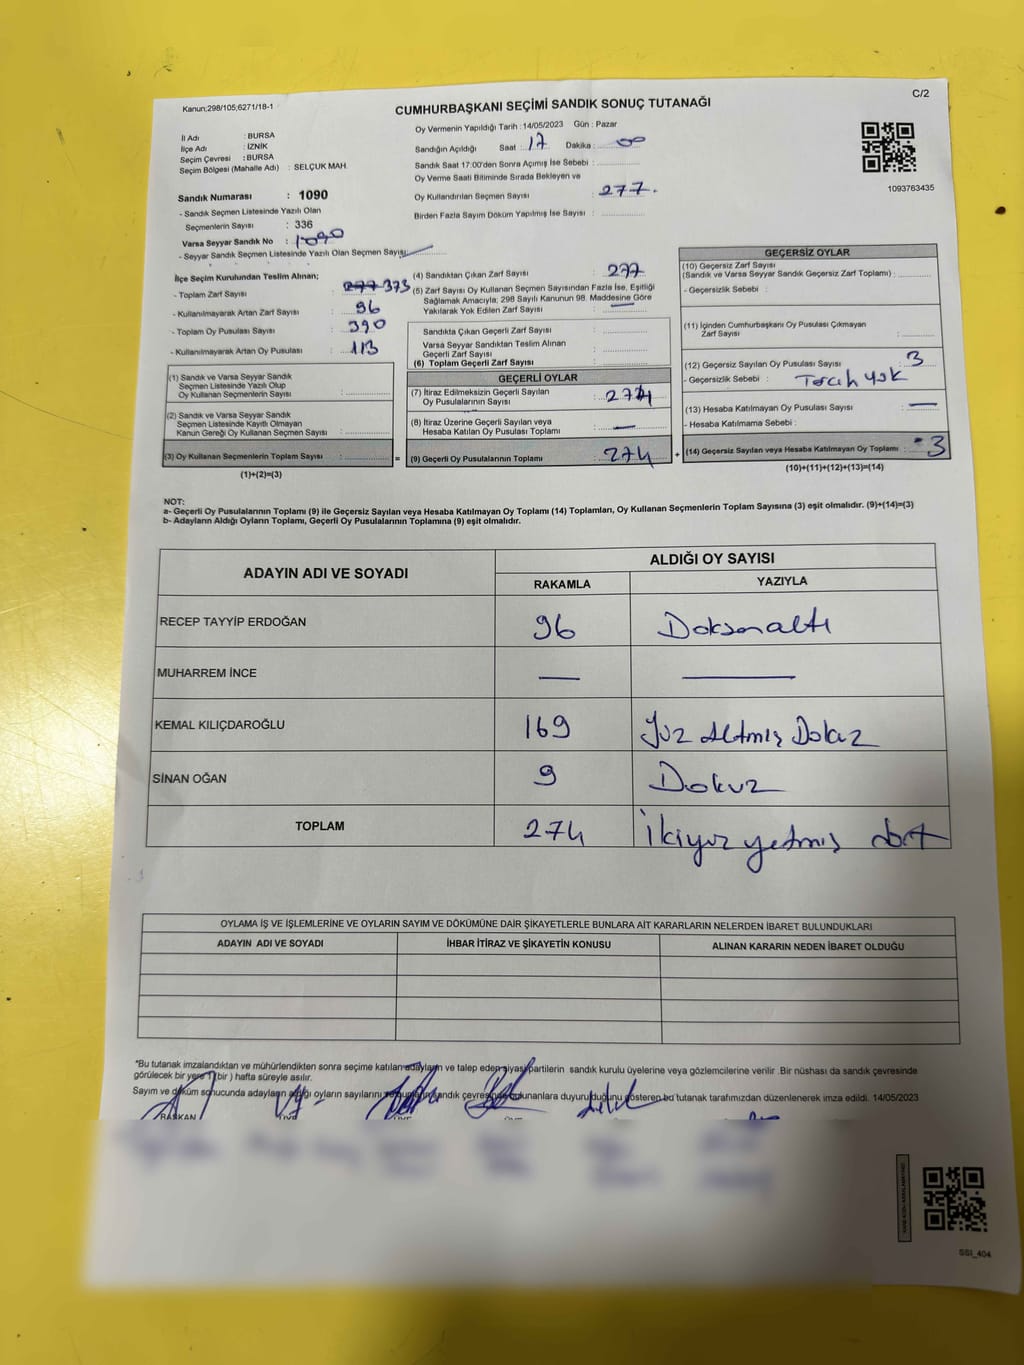 Kanun;298/105;6271/18-1
CUMHURBAŞKANI SEÇİMİ SANDIK SONUÇ TUTANAĞI
C/2
İl Adı : BURSA
İlçe Adı : İZNİK
Seçim Çevresi : BURSA
Seçim Bölgesi (Mahalle Adı) : SELÇUK MAH.
Sandık Numarası : 1090
- Sandık Seçmen Listesinde Yazılı Olan
Seçmenlerin Sayısı : 336
Varsa Seyyar Sandık No : 1090
- Seyyar Sandık Seçmen Listesinde Yazılı Olan Seçmen Sayısı:
Oy Vermenin Yapıldığı Tarih : 14/05/2023 Gün : Pazar
Sandığın Açıldığı Saat : 17 Dakika : 00
Sandık Saat 17:00'den Sonra Açımış İse Sebebi :
Oy Verme Saati Bitiminde Sırada Bekleyen ve
Oy Kullandırılan Seçmen Sayısı : 277.
Birden Fazla Sayım Döküm Yapılmış İse Sayısı :
1093763435
İlçe Seçim Kurulundan Teslim Alınan;
- Toplam Zarf Sayısı : 277 373
- Kullanılmayarak Artan Zarf Sayısı : 96
- Toplam Oy Pusulası Sayısı : 390
- Kullanılmayarak Artan Oy Pusulası : 113
(1) Sandık ve Varsa Seyyar Sandık
Seçmen Listesinde Yazılı Olup
Oy Kullanan Seçmenlerin Sayısı :
(2) Sandık ve Varsa Seyyar Sandık
Seçmen Listesinde Kayıtlı Olmayan
Kanun Gereği Oy Kullanan Seçmen Sayısı :
(3) Oy Kullanan Seçmenlerin Toplam Sayısı :
(1)+(2)=(3)
(4) Sandıktan Çıkan Zarf Sayısı : 277
(5) Zarf Sayısı Oy Kullanan Seçmen Sayısından Fazla İse, Eşitliği
Sağlamak Amacıyla; 298 Sayılı Kanunun 98. Maddesine Göre
Yakılarak Yok Edilen Zarf Sayısı : —
Sandıkta Çıkan Geçerli Zarf Sayısı :
Varsa Seyyar Sandıktan Teslim Alınan
Geçerli Zarf Sayısı :
(6) Toplam Geçerli Zarf Sayısı :
GEÇERLİ OYLAR
(7) İtiraz Edilmeksizin Geçerli Sayılan
Oy Pusulalarının Sayısı : 274
(8) İtiraz Üzerine Geçerli Sayılan veya
Hesaba Katılan Oy Pusulası Toplamı : —
(9) Geçerli Oy Pusulalarının Toplamı : 274
GEÇERSİZ OYLAR
(10) Geçersiz Zarf Sayısı
(Sandık ve Varsa Seyyar Sandık Geçersiz Zarf Toplamı) :
- Geçersizlik Sebebi :
(11) İçinden Cumhurbaşkanı Oy Pusulası Çıkmayan
Zarf Sayısı :
(12) Geçersiz Sayılan Oy Pusulası Sayısı : 3
- Geçersizlik Sebebi : Tercih yok
(13) Hesaba Katılmayan Oy Pusulası Sayısı : —
- Hesaba Katılmama Sebebi :
(14) Geçersiz Sayılan veya Hesaba Katılmayan Oy Toplamı : 3
(10)+(11)+(12)+(13)=(14)
NOT:
a- Geçerli Oy Pusulalarının Toplamı (9) ile Geçersiz Sayılan veya Hesaba Katılmayan Oy Toplamı (14) Toplamları, Oy Kullanan Seçmenlerin Toplam Sayısına (3) eşit olmalıdır. (9)+(14)=(3)
b- Adayların Aldığı Oyların Toplamı, Geçerli Oy Pusulalarının Toplamına (9) eşit olmalıdır.
ADAYIN ADI VE SOYADI
ALDIĞI OY SAYISI
RAKAMLA YAZIYLA
RECEP TAYYİP ERDOĞAN 96 Doksanaltı
MUHARREM İNCE — —
KEMAL KILIÇDAROĞLU 169 Yüz Altmış Dokuz
SİNAN OĞAN 9 Dokuz
TOPLAM 274 İkiyüz yetmiş dört
OYLAMA İŞ VE İŞLEMLERİNE VE OYLARIN SAYIM VE DÖKÜMÜNE DAİR ŞİKAYETLERLE BUNLARA AİT KARARLARIN NELERDEN İBARET BULUNDUKLARI
ADAYIN ADI VE SOYADI İHBAR İTİRAZ VE ŞİKAYETİN KONUSU ALINAN KARARIN NEDEN İBARET OLDUĞU
*Bu tutanak imzalandıktan ve mühürlendikten sonra seçime katılan adayların ve talep eden siyasi partilerin sandık kurulu üyelerine veya gözlemcilerine verilir .Bir nüshası da sandık çevresinde
görülecek bir yere 1 (bir ) hafta süreyle asılır.
Sayım ve döküm sonucunda adayların aldığı oyların sayılarını sandık çevresinde bulunanlara duyurulduğunu gösteren bu tutanak tarafımızdan düzenlenerek imza edildi. 14/05/2023
BAŞKAN
SSI_404